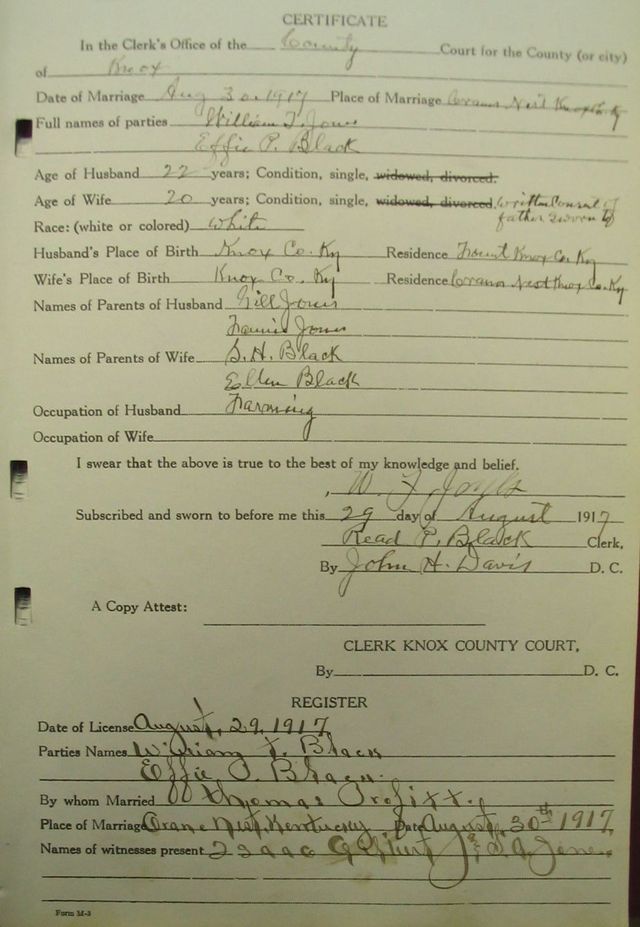 CERTIFICATE
In the Clerk's Office of the County Court for the County (or city)
of Knox
Date of Marriage Aug 30, 1917 Place of Marriage Cranes Nest Knox Co. Ky
Full names of parties William T. Jones
Effie P. Black
Age of Husband 22 years; Condition, single, widowed, divorced.
Age of Wife 20 years; Condition, single, widowed, divorced written consent of
father sworn to
Race: (white or colored) White
Husband's Place of Birth Knox Co. Ky Residence Knox Co. Ky
Wife's Place of Birth Knox Co. Ky Residence Cranes Nest Knox Co. Ky
Names of Parents of Husband Gill Jones
Fannie Jones
Names of Parents of Wife S. H. Black
Ellen Black
Occupation of Husband Farming
Occupation of Wife
I swear that the above is true to the best of my knowledge and belief.
W.
Subscribed and sworn to before me this 29 day of August 1917
Read P. Black Clerk,
By John H. Davis D. C.
A Copy Attest:
CLERK KNOX COUNTY COURT,
By D. C.
REGISTER
Date of License August, 29, 1917
Parties Names William T. Black
Effie P. Black
By whom Married Thomas
Place of Marriage Crane Nest, Kentucky Date August, 30th 1917
Names of witnesses present Isaac Jones
Form M-3